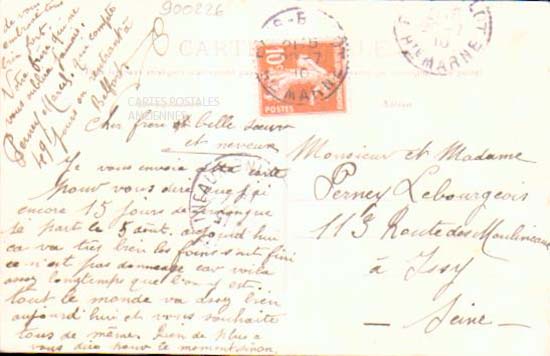 900226
de vous
Votre
vous oublie
Perney Marcel qui compte
49 jours en rentrant à
Belfort
CARTES POSTALES
ANCIENNES
POSTES
10
Hte MARNE
Hte MARNE
Cher frère et belle sœur
et neveux
Je vous envoie cette carte
pour vous dire que j'ai
encore 15 jours de
je part le 5 août. aujourd'hui
ca va très bien les foins sont fini
ce n'est pas dommage car voila
assez longtemps que l'on y est.
tout le monde va assez bien
aujourd'hui et vous souhaite
tous de même. Rien de plus a
vous dire pour le moment sinon
Monsieur et Madame
Perney Lebourgeois
113 Route des Moulineaux
à Issy
- Seine -